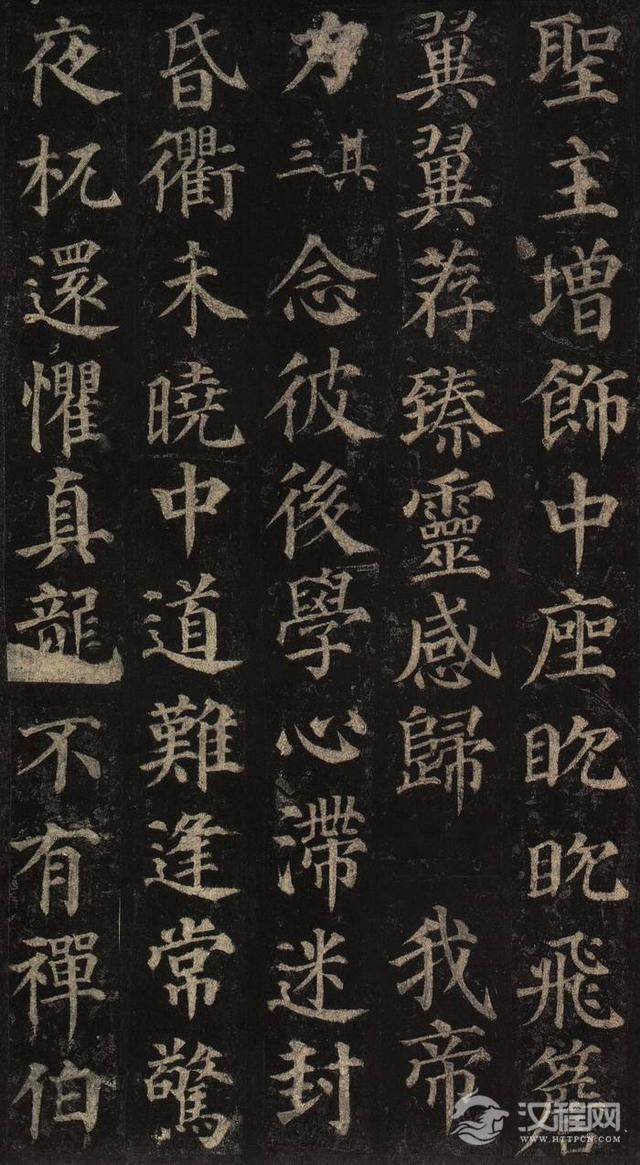 聖主增飾中座眈眈飛簷
翼翼荐臻靈感歸 我帝
力其三念彼後學心滯迷封
昏衢未曉中道難逢常驚
夜杌還懼真龍不有禪伯
汉程网
WWW.HTTPCN.COM